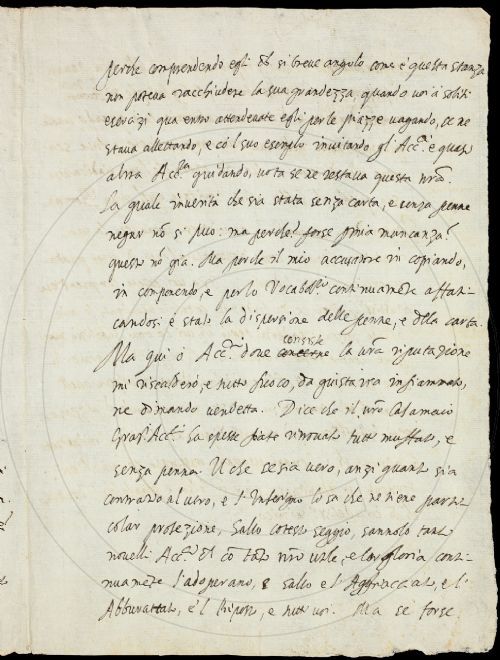 perche comprendendo egli ch si breve angolo come è questa stanza
non poteva racchiudere la sua grandezza quando voi a soliti
esercizi qua entro attendevate egli per le piazze vagando, se ne
stava allettando, e co'l suo esempio invitando gl'Acc.ci e quasi
altra Acc.ia guidando, vota se ne restava questa nrã.
la quale inverità che sia stata senza carta, e senza penne
negar nõ si puo: ma perche? forse p mia mancanza?
questo nõ gia. Ma perche il mio accusatore in copiando,
in componendo, e per lo Vocabol.rio continuamẽte affati-
candosi è stato la dispersione delle penne, e della carta.
Ma qui ò Acc.ci dove consiste la vrã riputazione
mi riscalderò, e tutto fuoco, da giusta ira infiammato,
ne dimando vendetta. Dice che il vrõ Calamaio
Gravi Acc.ci ha spesse fiate ritrovato tutto muffato, e
senza penna. Il che se sia vero, anzi quanto sia
contrario al vero, e l'Inferigno lo sa che ne tiene parti-
colar protezione, sallo cotesto seggio, sannolo tanti
novelli Acc.ci ch cõ tãto vrõ utile, e lor gloria conti-
nuamẽte l'adoperano, e sallo e l'Aggiacciato, e l'
Abburattato, e'l Riposto, e tutti voi. Ma se forse